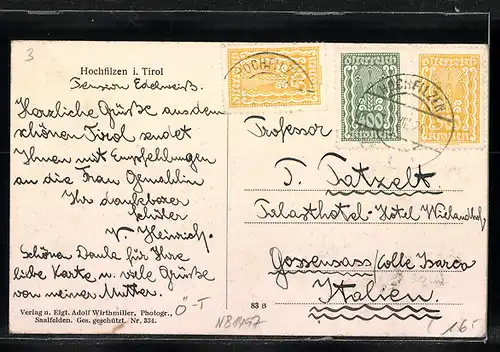 3
Hochfilzen i. Tirol
Pension Edelweiß.
Herzliche Grüße aus dem
schönen Tirol sendet
Ihnen mit Empfehlungen
an die Frau Gemahlin
Ihr dankbarer
Schüler
W. Heinrich.
Schönen Dank für Ihre
liebe Karte u. viele Grüße
von meiner Mutter.
Verlag u. Eigt. Adolf Wirthmiller, Photogr.,
Saalfelden. Ges. geschützt. Nr. 334.
Ö-T
83 B
HOCHFILZEN
HOCHFILZEN
Professor
T. Tatzelt
Palasthotel-Hotel Wielandhof
Gossensass/Colle Isarco
Italien.